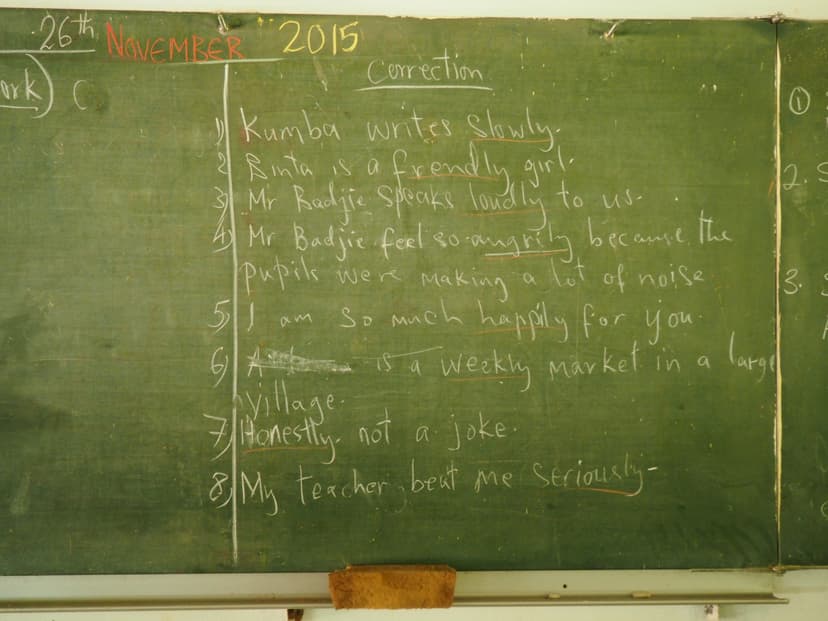 26th NOVEMBER 2015
ork) C
Correction
1) Kumba writes slowly.
2 Binta is a frendly girl.
3) Mr Badjie speaks loudly to us.
4) Mr Badjie feel so angrily because the
pupils were making a lot of noise
5) I am so much happily for you.
6) is a weekly market in a large
village.
7) Honestly not a joke.
8) My teacher beat me seriously
①
2. S
3. S